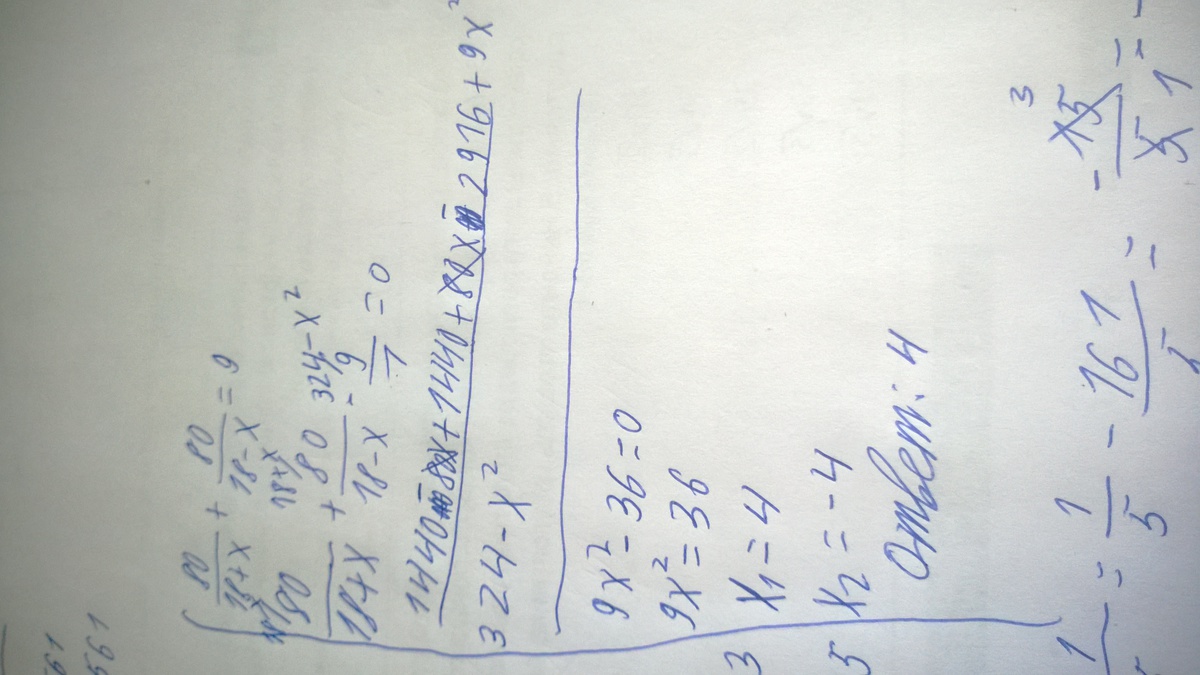 80/(18+x) + 80/(18-x) = 9
18-x 18+x 324-x²
80/(18+x) + 80/(18-x) - 9/1 = 0
1440-80x+1440+80x-2916+9x²
324-x²
9x²-36=0
9x²=36
x₁=4
x₂=-4
Ответ: 4
3
5
561
1/ = 1/5 - 161/ =
3
- 15/5 =
1